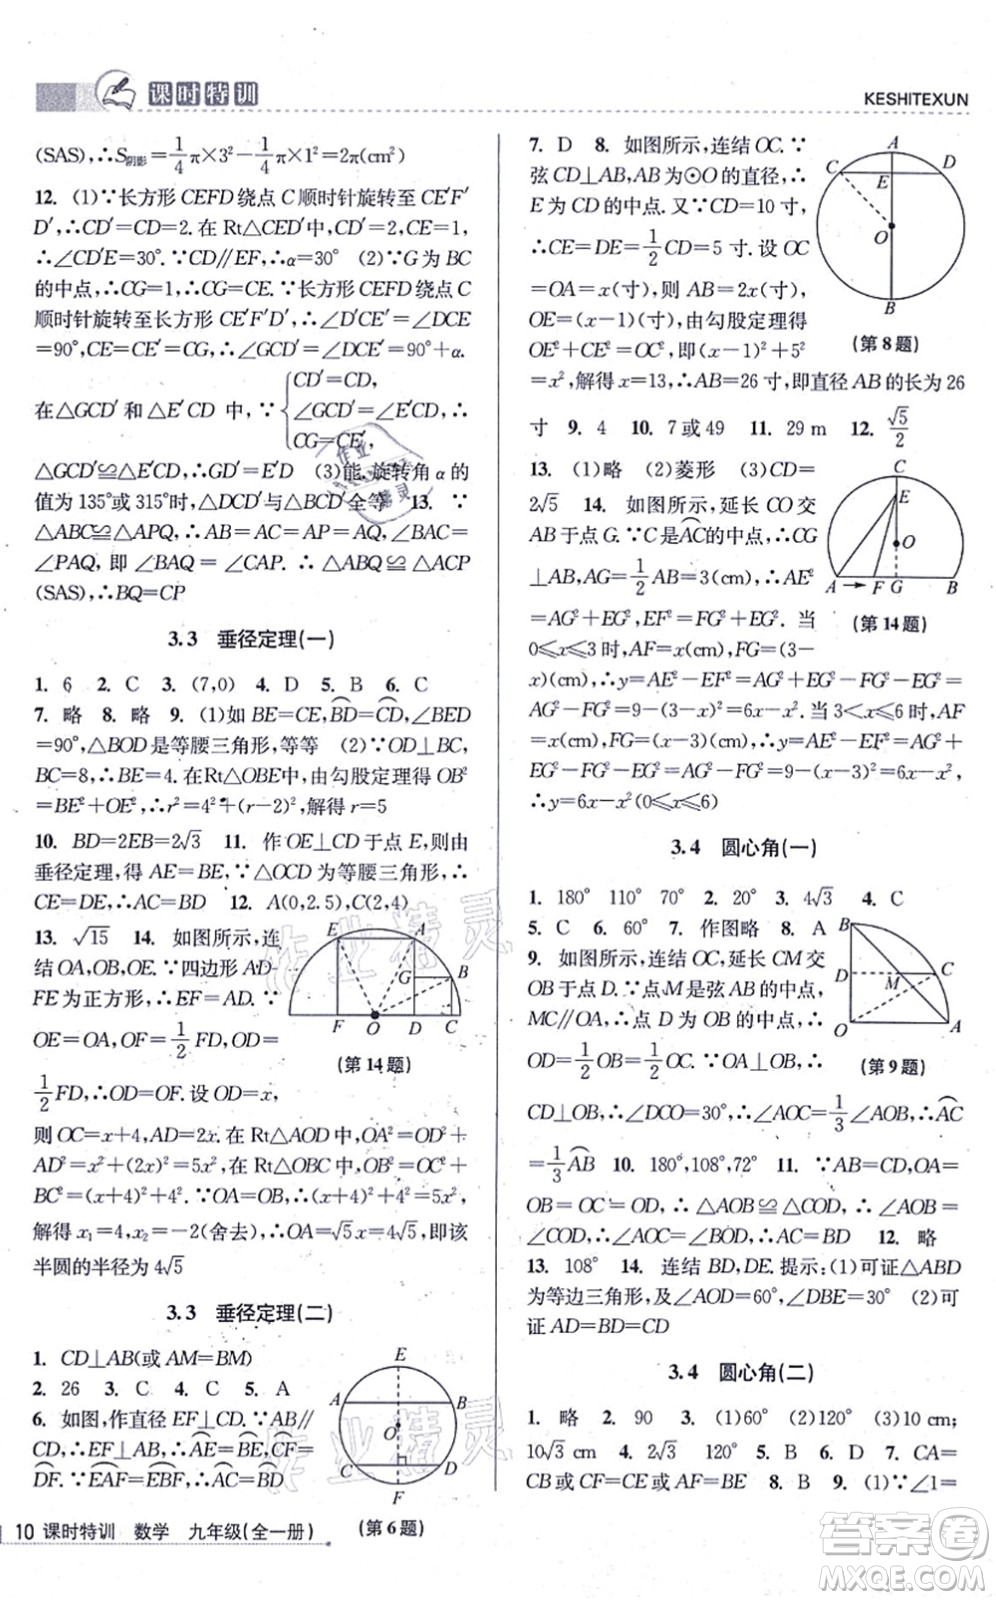 课时特训
KESHITEXUN
(SAS),∴S阴影=1/4π×3²-1/4π×1²=2π(cm²)
12. (1)∵长方形 CEFD 绕点 C 顺时针旋转至 CE′F′
D′,∴CD′=CD=2. 在 Rt△CED′中, CD′=2,CE=1,
∴∠CD′E=30°. ∵CD∥EF,∴α=30° (2)∵G 为 BC
的中点,∴CG=1,∴CG=CE. ∵长方形 CEFD 绕点 C
顺时针旋转至长方形 CE′F′D′,∴∠D′CE′=∠DCE
=90°,CE=CE′=CG,∴∠GCD′=∠DCE′=90°+α.
在△GCD′和△E′CD 中, ∵{CD′=CD,
∠GCD′=∠E′CD, ∴
CG=CE′,
△GCD′≌△E′CD(SAS),∴GD′=E′D (3)能. 旋转角 α 的
值为 135°或 315°时,△DCD′与△BCD′全等 13. ∵
△ABC≌△APQ,∴AB=AC=AP=AQ,∠BAC=
∠PAQ, 即 ∠BAQ = ∠CAP. ∴ △ABQ ≌ △ACP
(SAS),∴BQ=CP
3.3 垂径定理(一)
1. 6 2. C 3. (7,0) 4. D 5. B 6. C
7. 略 8. 略 9. (1)如 BE=CE,BD=CD,∠BED
=90°,△BOD 是等腰三角形,等等 (2)∵OD⊥BC,
BC=8,∴BE=4. 在 Rt△OBE 中,由勾股定理得 OB²
=BE²+OE²,∴r²=4²+(r-2)²,解得 r=5
10. BD=2EB=2√3 11. 作 OE⊥CD 于点 E,则由
垂径定理,得 AE=BE,∵△OCD 是等腰三角形,∴
CE=DE,∴AC=BD 12. A(0,2.5),C(2,4)
13. √15 14. 如图所示,连
结 OA,OB,OE. ∵四边形 AD-
FE 为正方形,∴EF=AD. ∵
OE=OA,OF=1/2FD,∴OD=
1/2FD,∴OD=OF. 设 OD=x,
E A G B F O D C
(第14题)
则 OC=x+4,AD=2x. 在 Rt△AOD 中,OA²=OD²+
AD²=x²+(2x)². 在 Rt△OBC 中,OB²=OC²+
BC²=(x+4)²+4². ∵OA=OB,∴(x+4)²+4²=5x²,
解得 x₁=4,x₂=-2(舍去),∴OA=√5x=4√5,即该
半圆的半径为 4√5
3.3 垂径定理(二)
1. CD⊥AB(或 AM=BM)
2. 26 3. C 4. C 5. A
6. 如图,作直径 EF⊥CD. ∵AB∥
CD,∴EF⊥AB,∴AE=BE,CF=
DF. ∵EAF=EBF,∴AC=BD
E A B O C D F
(第6题)
7. D 8. 如图所示,连结 OC. ∵
弦 CD⊥AB,AB 为⊙O 的直径,∴
E 为 CD 的中点. 又∵CD=10 寸,
∴CE=DE=1/2CD=5 寸. 设 OC
=OA=x(寸),则 AB=2x(寸),
OE=(x-1)(寸),由勾股定理得
OE²+CE²=OC²,即(x-1)²+5²
=x²,解得 x=13,∴AB=26 寸,即直径 AB 的长为 26
A C D E O B
(第8题)
寸 9. 4 10. 7 或 49 11. 29 m 12. √5/2
13. (1)略 (2)菱形 (3)CD=
2√5 14. 如图所示,延长 CO 交
AB 于点 G. ∵C 是AC的中点,∴CG
⊥AB,AG=1/2AB=3(cm),∴AE²
=AG²+EG²,EF²=FG²+EG². 当
0⩽x⩽3 时,AF=x(cm),FG=(3-
x)(cm),∴y=AE²-EF²=AG²+EG²-FG²-EG²=
AG²-FG²=9-(3-x)²=6x-x². 当 3<x⩽6 时,AF
=x(cm),FG=(x-3)(cm),∴y=AE²-EF²=AG²+
EG²-FG²-EG²=AG²-FG²=9-(x-3)²=6x-x²,
∴y=6x-x²(0⩽x⩽6)
C E O A F G B
(第14题)
3.4 圆心角(一)
1. 180° 110° 70° 2. 20° 3. 4√3 4. C
5. C 6. 60° 7. 作图略 8. A
9. 如图所示,连结 OC,延长 CM 交
OB 于点 D. ∵点 M 是弦 AB 的中点,
MC∥OA,∴点 D 为 OB 的中点,∴
OD=1/2OB=1/2OC. ∵OA⊥OB,∴
B D M C O A
(第9题)
CD⊥OB,∴∠DCO=30°,∴∠AOC=1/3∠AOB,∴AC
=1/3AB 10. 180°,108°,72° 11. ∵AB=CD,OA=
OB=OC=OD,∴△AOB≌△COD,∴∠AOB=
∠COD,∴∠AOC=∠BOD,∴AC=BD 12. 略
13. 108° 14. 连结 BD,DE. 提示:(1)可证△ABD
为等边三角形,∴∠AOD=60°,∠DBE=30° (2)可
证 AD=BD=CD
3.4 圆心角(二)
1. 略 2. 90 3. (1)60° (2)120° (3)10 cm;
10√3 cm 4. 2√3 120° 5. B 6. D 7. CA=
CB 或 CF=CE 或 AF=BE 8. B 9. (1)∵∠1=
10 课时特训 数学 九年级(全一册)
作业精灵
答案圈
MXQE.COM